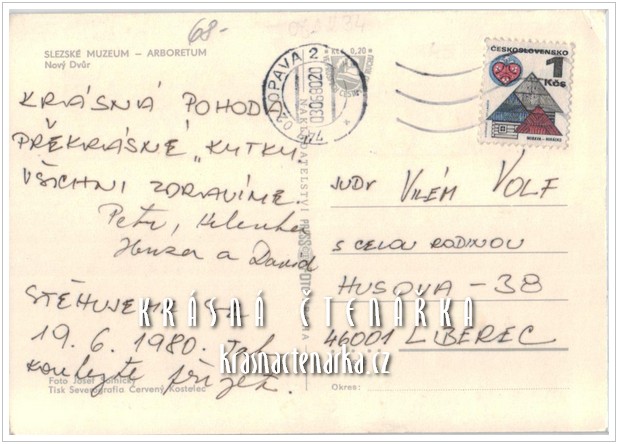 68-
SLEZSKÉ MUZEUM — ARBORETUM
Nový Dvůr
KRÁSNÁ POHODA
PŘEKRÁSNÉ „KYTKY.
VŠICHNI ZDRAVÍME.
Petr, Helenka
Honza a David
STĚHUJEME SE
19. 6. 1980.
přijet.
Foto Josef Solnický
Tisk Severografia Červený Kostelec
OPAVA 2
Kčs 0,20
NAKLADATELSTVÍ PRESSFOTO
ČESKOSLOVENSKO
1
Kčs
JUDr VILÉM VOLF
S CELOU RODINOU
HUSOVA - 38
46001 LIBEREC
Okres:
KRÁSNÁ ČTENÁRKA
Krasnactenarka.cz